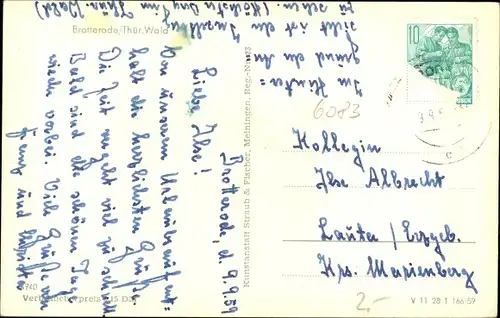 Brotterode/Thür. Wald
Brotterode, d. 9.9.59
Liebe Ilse!
Von unserem Urlaubsaufent-
halt die herzlichsten Grüße.
Die Zeit vergeht viel zu schnell.
Bald sind die schönen Tage
wieder vorbei. Viele Grüße von
Im Hinter-
grund den du
siehst ist der Inselsberg
zu sehen. (Höchster Berg im
Thür. Wald)
Kunstanstalt Straub & Fischer, Meiningen, Reg.-Nr.
10
6083
Kollegin
Ilse Albrecht
Lauta / Erzgeb.
Krs. Marienberg
2,-
V 11 28 1 166/59